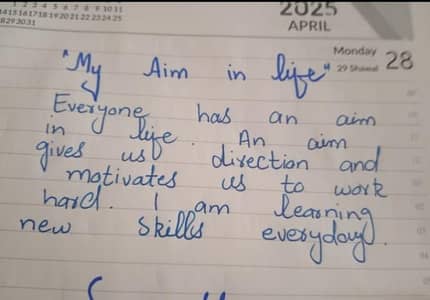 1 2 3 4 5 6 7 8 9 10 11
14 15 16 17 18 19 20 21 22 23 24 25
28 29 30 31
2025
APRIL
Monday 28
29 Shawal
"My Aim in life"
Everyone has an aim
in life. An aim
gives us direction and
motivates us to work
hard. I am learning
new skills everyday.